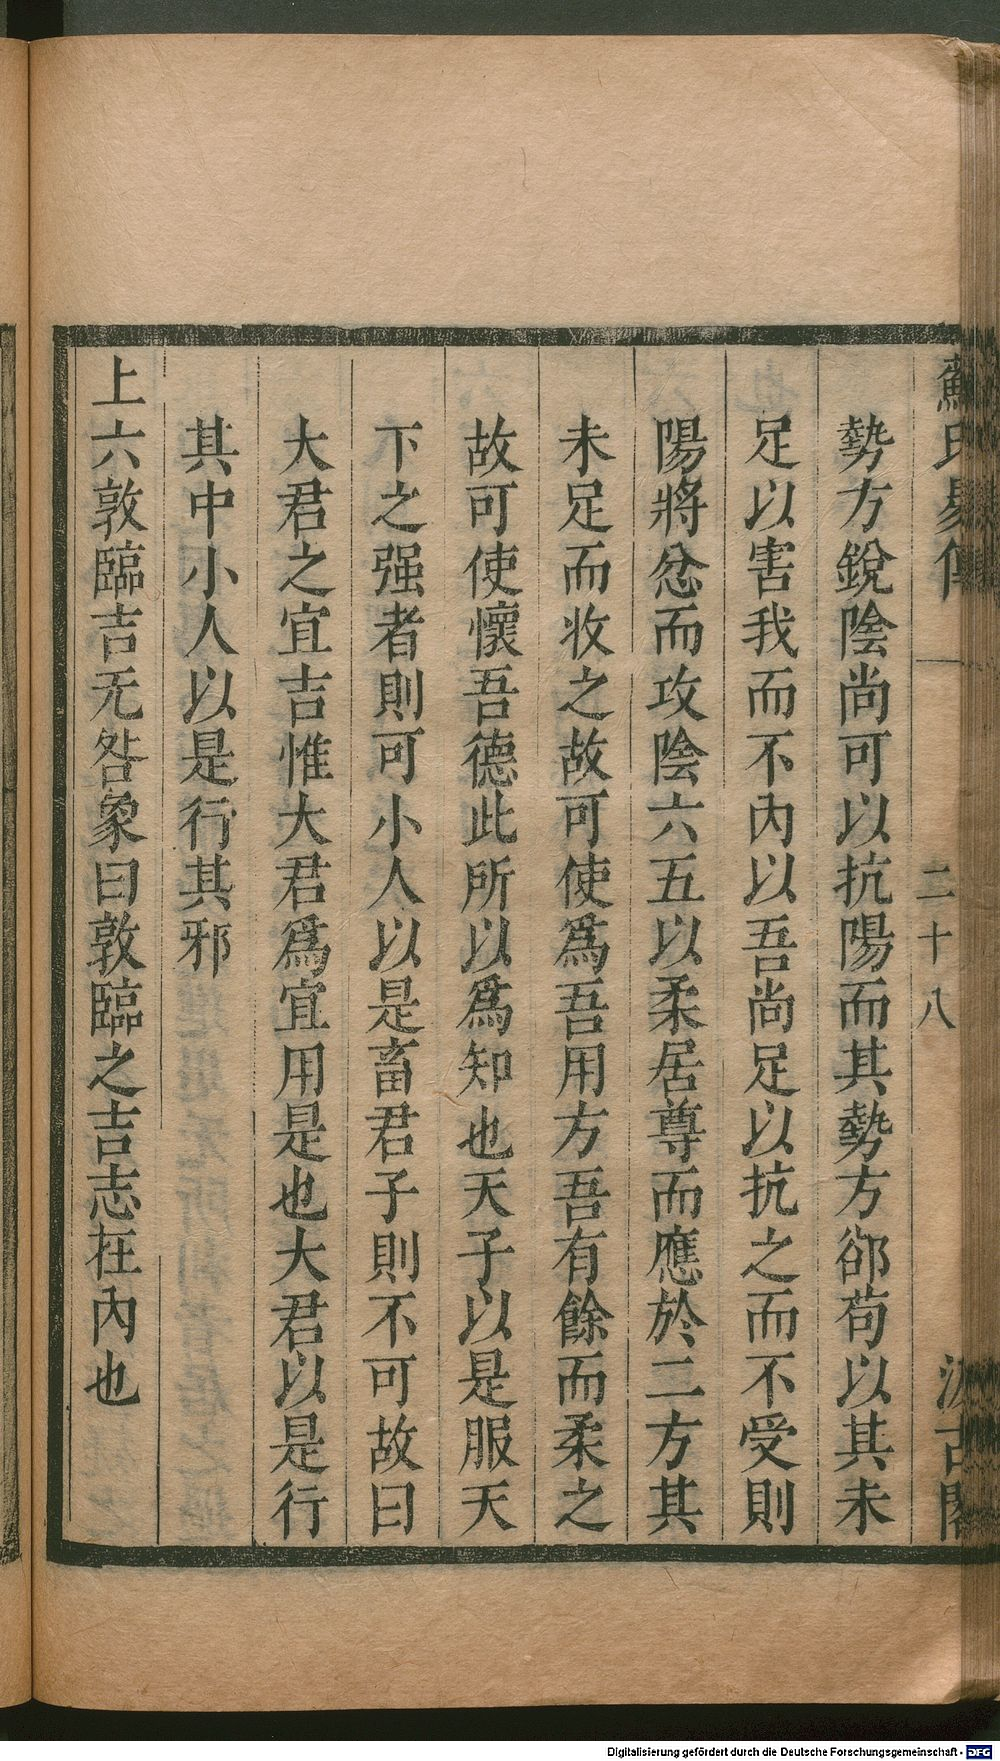 蘇氏易傳
二十八
汲古閣
勢方銳陰尚可以抗陽而其勢方郤苟以其未
足以害我而不內以吾尚足以抗之而不受則
陽將忿而攻陰六五以柔居尊而應於二方其
未足而收之故可使爲吾用方吾有餘而柔之
故可使懷吾德此所以爲知也天子以是服天
下之强者則可小人以是畜君子則不可故曰
大君之宜吉惟大君爲宜用是也大君以是行
其中小人以是行其邪
上六敦臨吉无咎象曰敦臨之吉志在內也
Digitalisierung gefördert durch die Deutsche Forschungsgemeinschaft - DFG